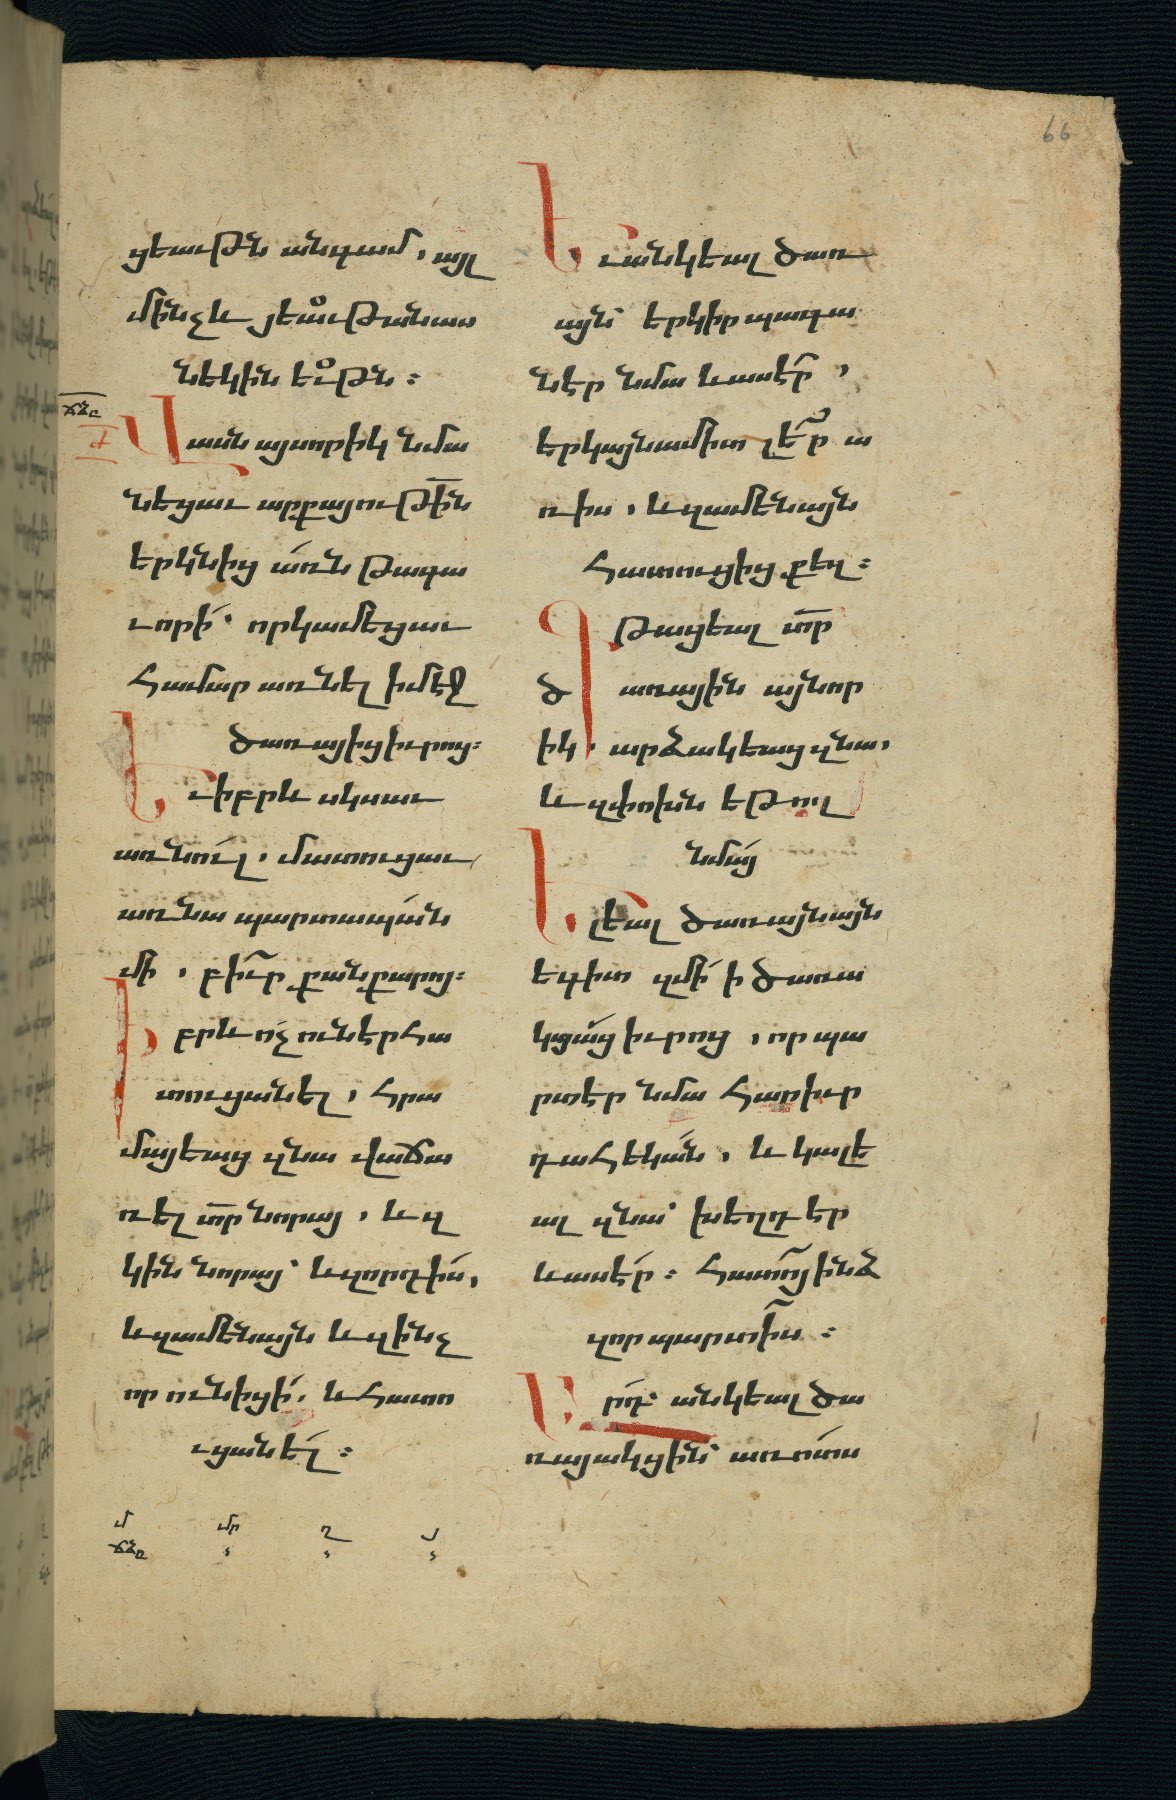 66
ցեաւթն անգամ, այլ
մինչև յեաւթանաս
նեկին եւթն։
ՃՁԸ
Ժ
Վասն այսորիկ նմա
նեցաւ արքայութին
երկնից առն թագա
ւորի՝ որկամեցաւ
համար առնել իմէջ
ծառայից իւրոց։
Եւիբրև սկսաւ
առնուլ, մատուցաւ
առնա պարտապան
մի, բիւր քանքարոյ։
Իբրև ոչ ունէր հա
տուցանել, հրա
մայեաց զնա վաճա
ռել տր նորայ, և զ
կին նորայ՝ և զորդիս,
և զամենայն և զինչ
որ ունիցի, և հատո
ւցանել։
մ մր ղ յ
ՃՁԸ
Եւանկեալ ծառ
այն՝ երկիր պագա
նէր նմա և ասէր,
երկայնամիտ լեր ա
ռիս, և զամենայն
հատուցից քեզ։
Գթացեալ տր
ծառային այնոր
իկ, արձակեաց զնա,
և զփոխն եթող
նմայ
Ելեալ ծառայնայն
եգիտ զմի ի ծառա
կցաց իւրոց, որ պա
րտէր նմա հարիւր
դահեկան, և կալե
ալ զնա՝ խեղդէր
և ասէր։ Հատո ինձ
զոր պարտիս։
Եւ անկեալ ծա
ռայակցին՝ առ ոտս